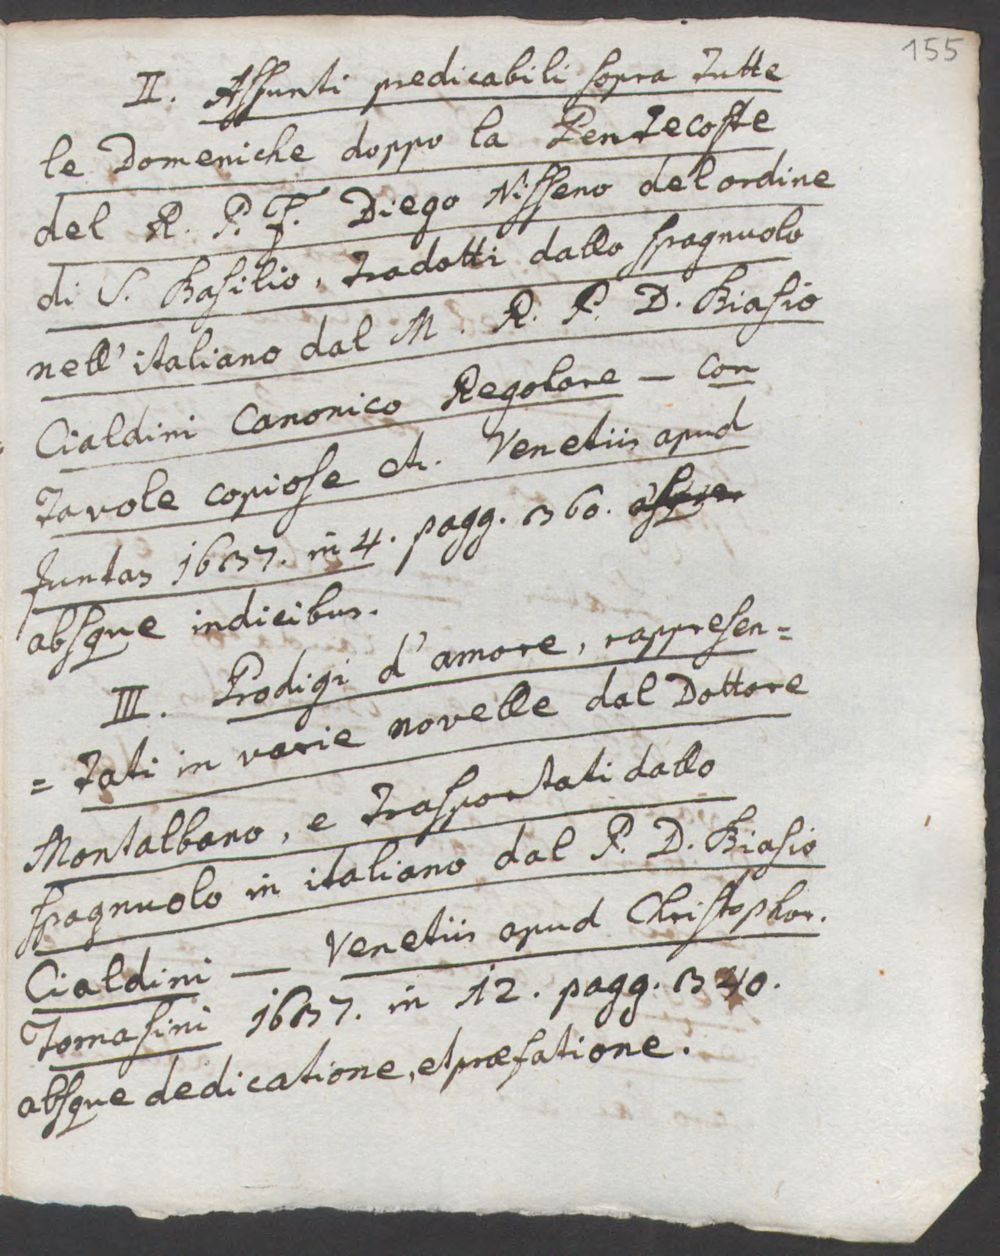 155
II. Assunti predicabili sopra tutte
le Domeniche doppo la Pentecoste
del R. P. F. Diego Nisseno del ordine
di S. Basilio, tradotti dallo spagnuolo
nell' italiano dal M R. P. D. Biasio
Cialdini Canonico Regolare — con
tavole copiose etc. Venetiis apud
Juntas 1637. in 4. pagg. 360.
absque indicibus.
III. Prodigi d' amore, rappresen=
= tati in varie novelle dal Dottore
Montalbano, e trasportati dallo
spagnuolo in italiano dal P. D. Biasio
Cialdini — Venetiis apud Christophor.
Tomasini 1637. in 12. pagg. 340.
absque dedicatione, et præfatione.